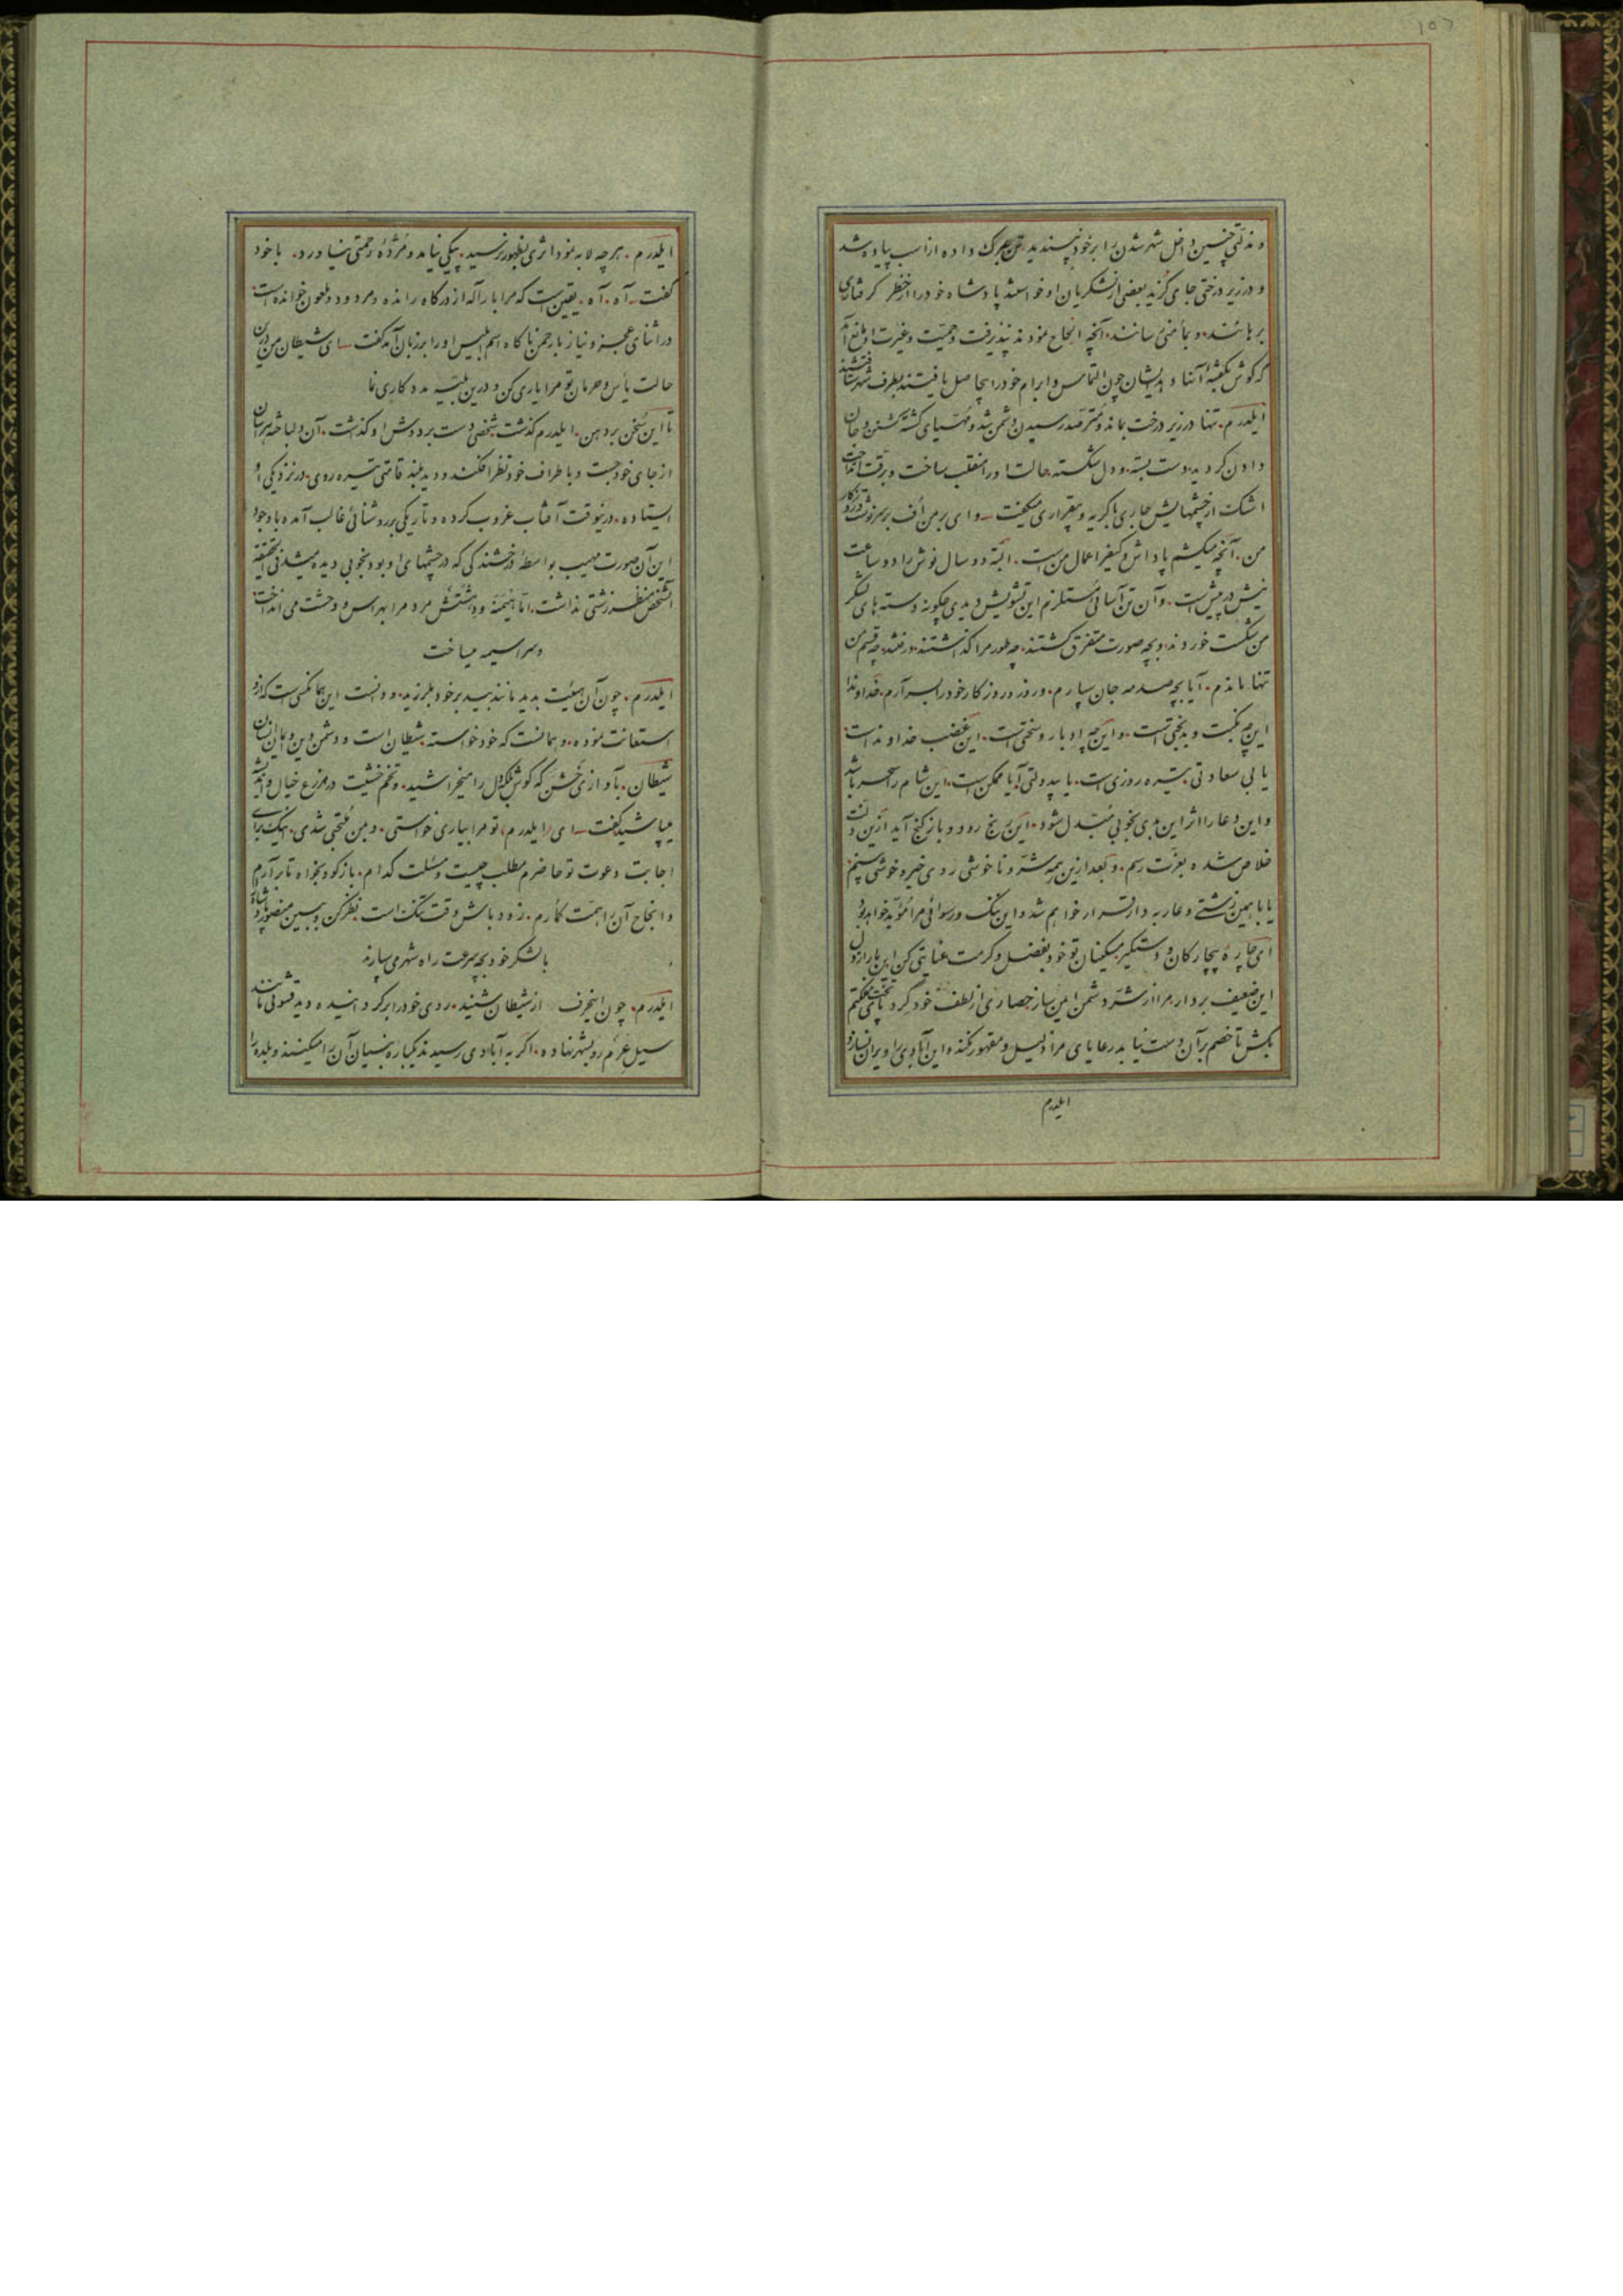 ۱۵۲
و مذلتی چنین داخل شهر شدن را بر خود نپسندید تن بمرک داده از اسب پیاده شد
و در زیر درختی جای کزید بعضی از لشکریان او خواستند پادشاه خود را از خطر کرفتاری
برهانند و بمأمنی رسانند آنچه الحاح نمودند نپذیرفت و حمیت و غیرت او مانع آمد
که کوش بکفتهٔ آنها دهد ایشان چون التماس و ابرام خود را بیحاصل یافتند بطرف شهر شتافتند
ایلدرم تنها در زیر درخت بماند و مترصد رسیدن دشمن شد و مهیای کشته کشتن و جان
دادن کردید دست بسته و دل شکسته حالت او را منقلب ساخت و برقت انداخت
اشک از چشمهایش جاری با کریه و بیقراری میکفت وای بر من اف بر سرنوشت و روزکار
من آنچه میکشم پاداش و کیفر اعمال من است البته دو سال نوش را دو ساعت
نیش در پیش است و آن تن آسائی مستلزم این تشویش دیدی چکونه دسته های لشکر
من شکست خوردند و بچه صورت متفرق کشتند چه طور مرا کذاشتند و رفتند چه قسم من
تنها ماندم آیا بچه صدمه جان سپارم و روز و روزکار خود را بسر آرم خداوندا
این چه نکبت و بدبختی است و این چه ادبار و سختی است این غضب خداوند است
یا بی سعادتی تیره روزی است یا بیدولتی آیا ممکن است این شام را سحر باشد
و این دعا را اثر این بدی بخوبی مبدل شود این رنج رود و باز کنج آید ازین ذلت
خلاص شده بعزت رسم و بعد ازین همه شر و ناخوشی روی خیر و خوشی بینم
یا با همین زشتی و عار به دار القرار خواهم شد و این ننک و رسوائی مرا مؤید خواهد بود
ای چارهٔ بیچارکان و دستکیر مسکینان تو خود بفضل و کرمت عنایتی کن این بار از دل
این ضعیف بردار مرا از شر دشمن ایمن ساز حصاری از لطف خود کرد پای تخت مملکتم
بکش تا خصم بر آن دست نیابد رعایای مرا ذلیل و مقهور نکند و این آبادی را ویران نسازد
ایلدرم
ایلدرم هر چه لابه نمود اثری بظهور نرسید پیکی نیامد و مژدهٔ رحمتی نیاورد با خود
کفت آه آه یقین است که مرا بار اله از درکاه رانده و مردود و ملعون خوانده است
در اثنای عجز و نیاز با رحمن ناکاه اسم ابلیس او را بر زبان آمد کفت ای شیطان من درین
حالت یأس و حرمان تو مرا یاری کن و درین بلیه مددکاری نما
تا این سخن بر دهن ایلدرم کذشت شخصی دست بر دوش او کذاشت آن دلباخته هراسان
از جای خود جست و باطراف خود نظر افکند دید بلند قامتی تیره روی در نزدیکی او
ایستاده درینوقت آفتاب غروب کرده و تاریکی بر روشنائی غالب آمده با وجود
این آن صورت مهیب بواسطهٔ درخشندکی که در چشمهای او بود بخوبی دیده میشد فی الحقیقه
آنشخص منظر زشتی نداشت اما هیمنه و دهشتش مردم را بهراس و وحشت می انداخت
و سراسیمه میساخت
ایلدرم چون آن هیئت بدید مانند بید بر خود بلرزید و دانست این همانکسی است که از او
استعانت نموده و همانست که خود خواسته شیطان است و دشمن دین و ایمان انسان
شیطان با آوازی خشن که کوش و دل را میخراشید و تخم خشیت در مزرع خیال و اندیشه
میپاشید کفت ای ایلدرم تو مرا بیاری خواستی و بمن ملتجی شدی اینک برای
اجابت دعوت تو حاضرم مطلب چیست و مسئلت کدام بازکو و بخواه تا برآرم
و انجاح آن را همت کمارم زود باش وقت تنک است نظر کن و ببین منصور پادشاه
با لشکر خود بچه سرعت راه شهر می سپارند
ایلدرم چون اینحرف از شیطان شنید روی خود را برکردانیده دید قشونی مانند
سیل عرم رو بشهر نهاده اکر به آبادی رسیدند یکباره بنیان آن را میکنند و بلده را